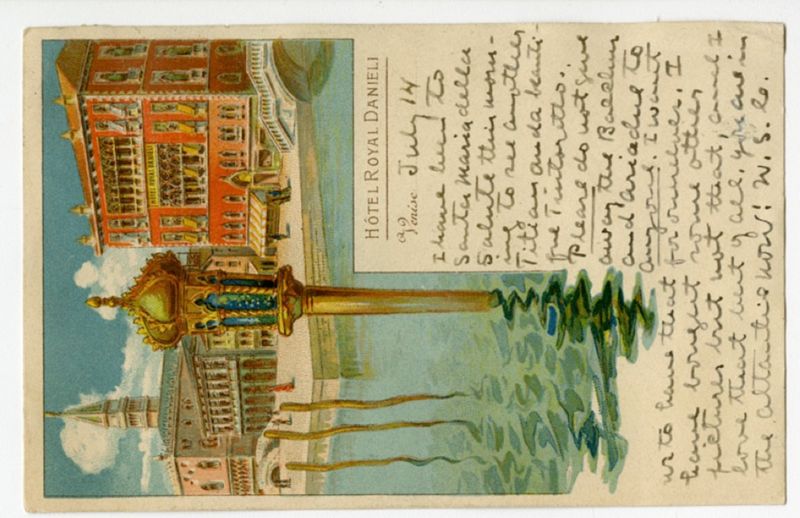 HÔTEL ROYAL DANIELI
Venise July 14
I have been to
Santa Maria della
Salute this morn-
ing to see another
Titian and a beauti-
ful Tintoretto.
Please do not give
away the Bacchus
and Ariadne to
anyone. I want
us to have that for ourselves. I
have bought some other
pictures but not that, and I
love that best of all, you are in
the Atlantic now! W. S.